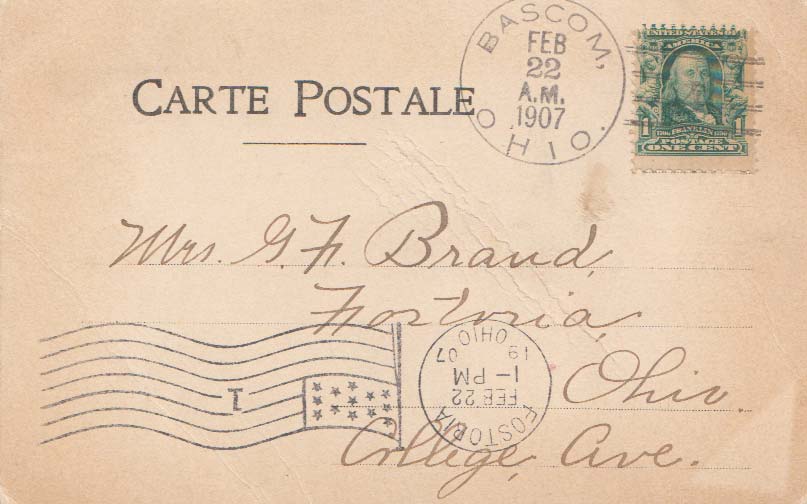 BASCOM,
FEB
22
A.M.
1907
OHIO.
UNITED STATES OF
AMERICA
1 FRANKLIN 1
POSTAGE
ONE CENT
CARTE POSTALE
Mrs. G. F. Brand,
Fostoria,
Ohio.
College Ave.
FOSTORIA
FEB 22
1-PM
19 OHIO 07
1